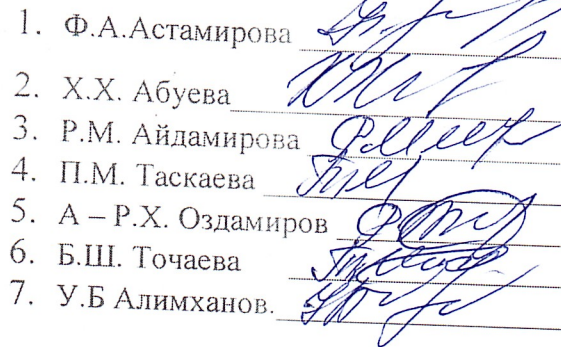 1. Ф.А.Астамирова
2. Х.Х. Абуева
3. Р.М. Айдамирова
4. П.М. Таскаева
5. А – Р.Х. Оздамиров
6. Б.Ш. Точаева
7. У.Б Алимханов.